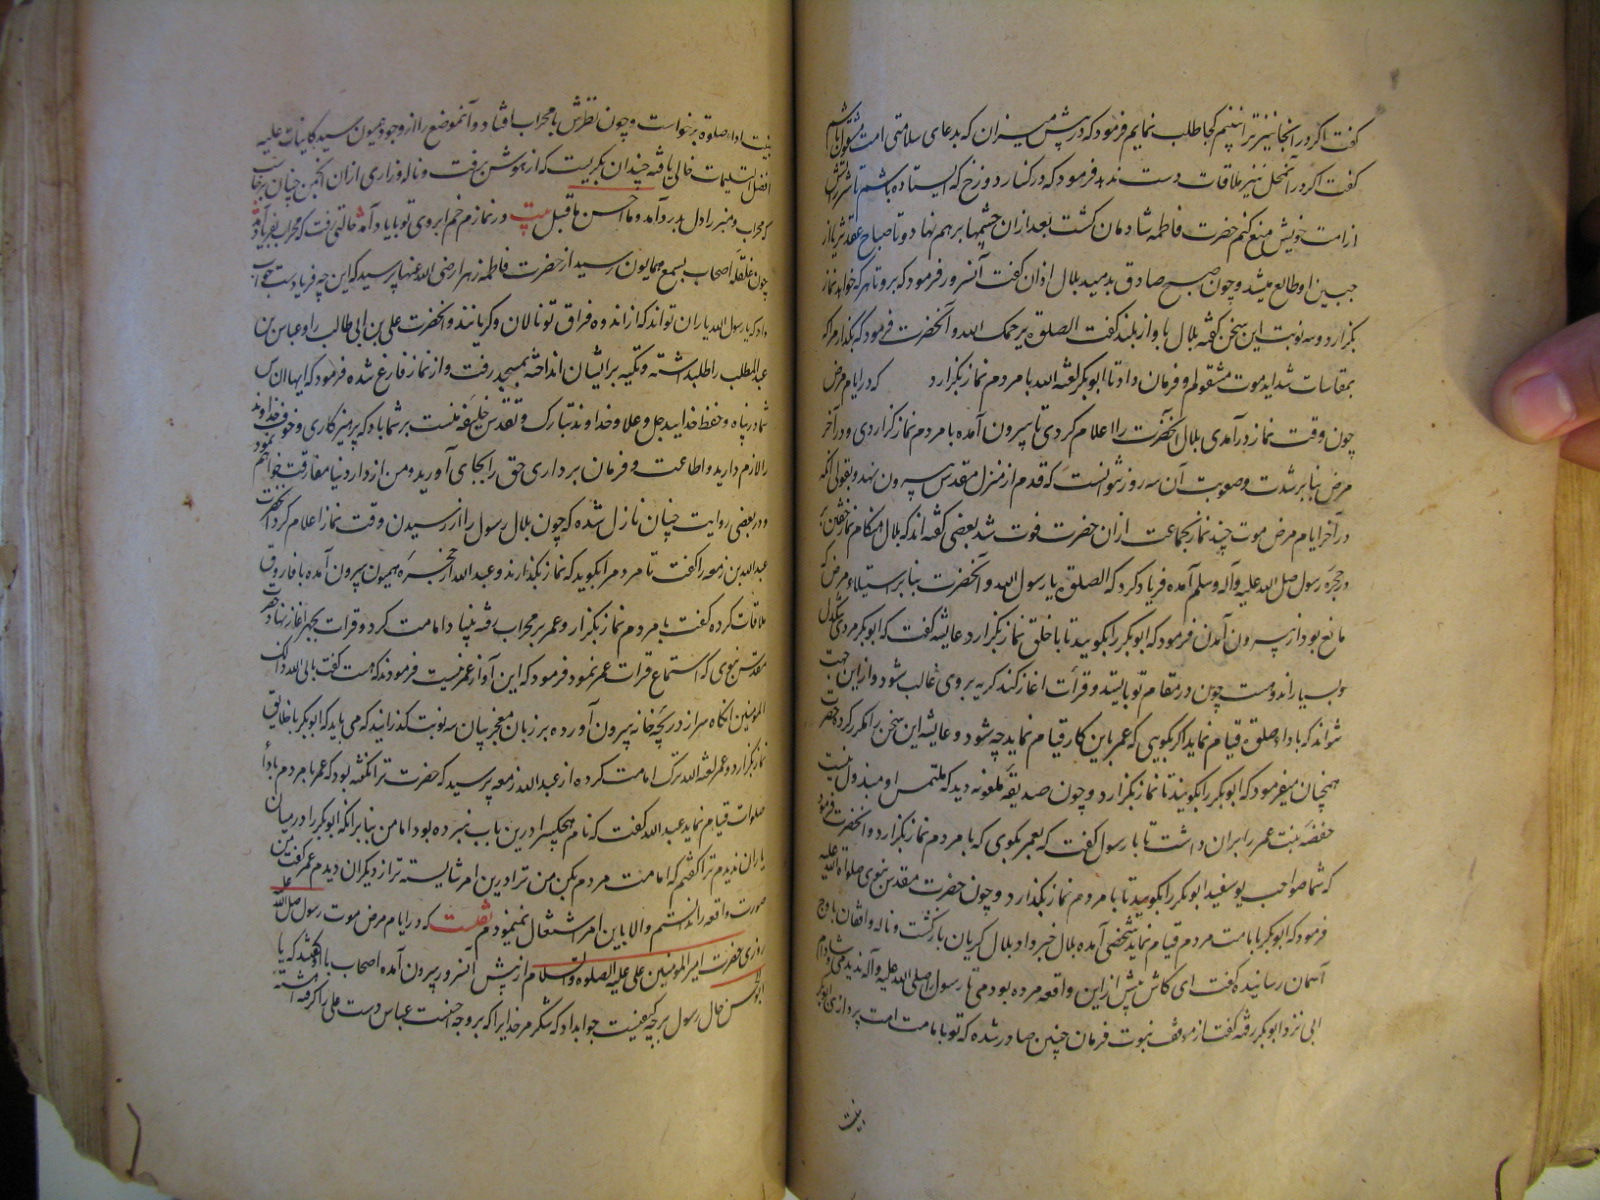 گفت اگر در انجا نیز ترا نبینم کجا طلب نمایم فرمود که در پیش میزان که بدعای سلامتی امت مشغول باشم
گفت اگر در آنمحل نیز ملاقات دست ندهد فرمود که در کنار دوزخ که ایستاده باشم تا شرر آتش
از امت خویش منع کنم حضرت فاطمه شادمان گشت بعد ازان چشمها بر هم نهاد و تا صباح عقد ثریا از
جبین او طالع میشد و چون صبح صادق بدمید بلال اذان گفت آنسرور فرمود که برو تا هر که خواهد نماز
بگزارد و سه نوبت این سخن گفته بلال باواز بلند گفت الصلوة یرحمک الله و آنحضرت فرمود که بگذار مرا که
بمقاسات شداید موت مشغولم و فرمان داد تا ابوبکر لعنه الله با مردم نماز بگزارد که در ایام مرض
چون وقت نماز درآمدی بلال آنحضرت را اعلام کردی تا بیرون آمده با مردم نماز گزاردی و در آخر
مرض بنا بر شدت و صعوبت آن سه روز نتوانست که قدم از منزل مقدس بیرون نهد و بقولی آنکه
در آخر ایام مرض موت چند نماز بجماعت ازان حضرت فوت شد بعضی گفته اند که بلال هنگام نماز خفتن
در حجره رسول صلی الله علیه و آله وسلم آمده فریاد کرد که الصلوة یا رسول الله و آنحضرت بنا بر استیلاء مرض که
مانع بود از بیرون آمدن فرمود که ابوبکر را بگویید تا با خلق نماز بگزارد عایشه گفت که ابوبکر مردی تنگدل
و بسیار اندوهست چون در مقام تو بایستد و قرأت اغاز کند گریه بر وی غالب شود و ازین جهت
نتواند که باداء صلوة قیام نماید اگر بگویی که عمر باین کار قیام نماید چه شود و عایشه این سخن را مکرر کرد حضرت
همچنان میفرمود که ابوبکر را بگویید تا نماز بگزارد و چون صدیقه ملعونه دید که ملتمس او مبذول نیست
حفصه بنت عمر را بران داشت تا با رسول گفت که بعمر بگوی که با مردم نماز بگزارد و آنحضرت فرمود
که شما صواحب یوسفید ابوبکر را بگویید تا با مردم نماز بگذارد و چون حضرت مقدس نبوی صلواة الله علیه
فرمود که ابوبکر بامامت مردم قیام نماید شخصی آمده بلال خبر داد بلال گریان بازگشت و ناله و افغان باوج
آسمان رسانیده گفت ای کاش پیش از این واقعه مرده بودمی تا رسول را صلی الله علیه و آله ندیدمی
ابی نزد ابوبکر رفته گفت از موقف نبوت فرمان چنین صادر شده که تو بامامت امت پردازی ابوبکر
بنیت
بنیت اداء صلوة برخواست و چون نظرش بامحراب افتاد و آنموضع را از وجود همیون سید کاینات علیه
افضل التسلیمات خالی یافته چندان بگریست که از هوش برفت و ناله و زاری ازان انجمن چنان برخاست
که محراب و منبر را دل بدرد آمد و ما احسن ما قبل بیت در نمازم خم ابروی تو با یاد آمد حالتی رفت که محراب بفریاد آمد
چون غلغله اصحاب بسمع همایون رسید از حضرت فاطمه زهرا رضی الله عنها پرسید که این چه فریادست جواب
داد که یا رسول الله یاران تواند که از اندوه فراق تو نالان و گریانند و آنحضرت علی بن ابی طالب را و عباس بن
عبد المطلب را طلب داشته و تکیه بر ایشان انداخته بمسجد رفت و از نماز فارغ شده فرمود که ایها الناس
شما در پناه و حفظ خدایید جل و علا و خداوند تبارک و تقدس خلیفه منست بر شما باد که پرهیزگاری و خوف خداوند
را لازم دارید و اطاعت و فرمان برداری حق را بجای آورید و من از دار دنیا مفارقت خواهم نمود
و در بعضی روایت چنان نازل شده که چون بلال رسول را از رسیدن وقت نماز اعلام کرد آنحضرت
عبد الله بن زمعه را گفت تا مردم را بگوید که نماز بگذارند و عبد الله از حجره همیون بیرون آمده با فاروق
ملاقات کرده گفت با مردم نماز بگزار و عمر بر محراب رفته بنیاد امامت کرد و قرات بجهر اغاز نهاد حضرت
مقدس نبوی که استماع قرات عمر نمود فرمود که این آواز عمر نیست فرمودند که هست گفت یابی الله ذلک
المومنین انگاه سر از دریچه خانه بیرون آورده بر زبان معجز بیان سه نوبت گذرانید که می باید که ابوبکر با خلایق
نماز بگزارد و عمر لعنه الله ترک امامت کرده از عبد الله زمعه پرسید که حضرت ترا نگفته بود که عمر با مردم باداء
صلوات قیام نماید عبد الله گفت که نام هیچکس را درین باب نبرده بود اما من بنابر آنکه ابوبکر را در میان
یاران ندیدم ترا گفتم که امامت مردم بکن من ترا درین امر شایسته تر از دیگران دیدم عمر گفت من
صورت واقعه را ندانستم والا باین امر اشتغال نمینمودم نقلست که در ایام مرض موت رسول صلی الله علیه
روزی حضرت امیر المومنین علی علیه الصلوة والسلام از پیش آنسرور بیرون آمده اصحاب با او گفتند که یا
ابوالحسن حال رسول بر چه کیفیت جواب داد که شکر مر خدایرا که بر وجه احسنست عباس دست علی را گرفته آهسته